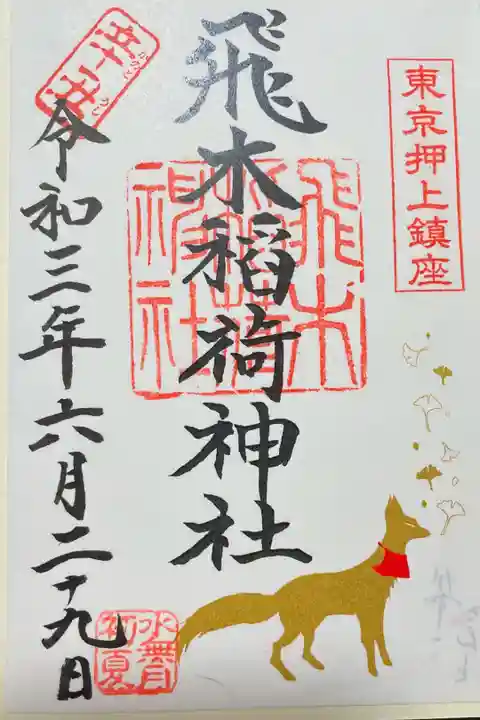 東京押上鎮座
飛木稲荷神社
飛木稲荷神社
令和三年六月二十九日
水無月